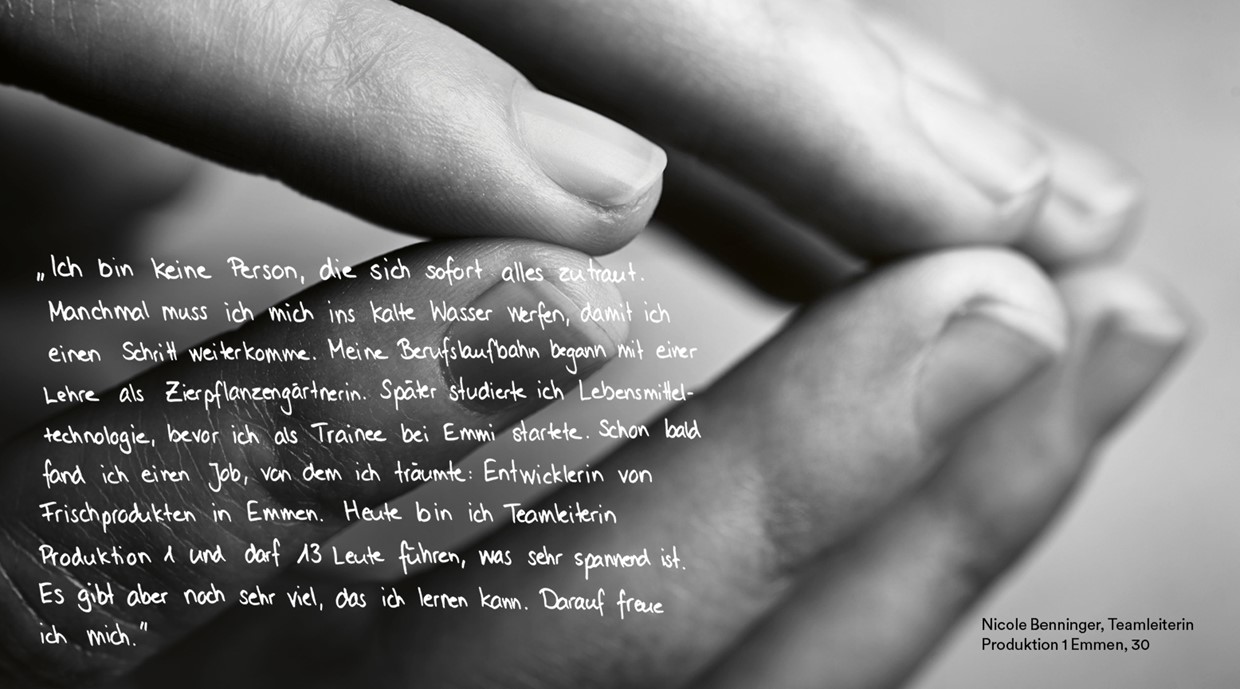 „Ich bin keine Person, die sich sofort alles zutraut.
Manchmal muss ich mich ins kalte Wasser werfen, damit ich
einen Schritt weiterkomme. Meine Berufslaufbahn begann mit einer
Lehre als Zierpflanzengärtnerin. Später studierte ich Lebensmittel-
technologie, bevor ich als Trainee bei Emmi startete. Schon bald
fand ich einen Job, von dem ich träumte: Entwicklerin von
Frischprodukten in Emmen. Heute bin ich Teamleiterin
Produktion 1 und darf 13 Leute führen, was sehr spannend ist.
Es gibt aber noch sehr viel, das ich lernen kann. Darauf freue
ich mich.“
Nicole Benninger, Teamleiterin
Produktion 1 Emmen, 30